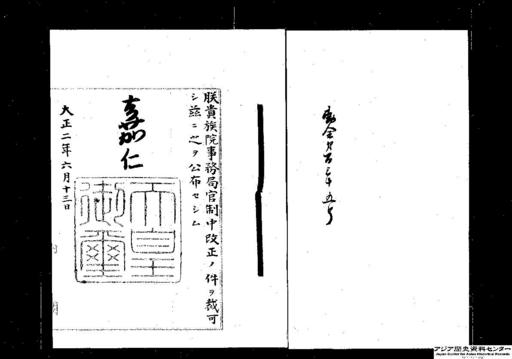 朕貴族院事務局官制中改正ノ件ヲ裁可
シ茲ニ之ヲ公布セシム
嘉仁
天皇
御璽
大正二年六月十三日
アジア歴史資料センター
Japan Center for Asian Historical Records